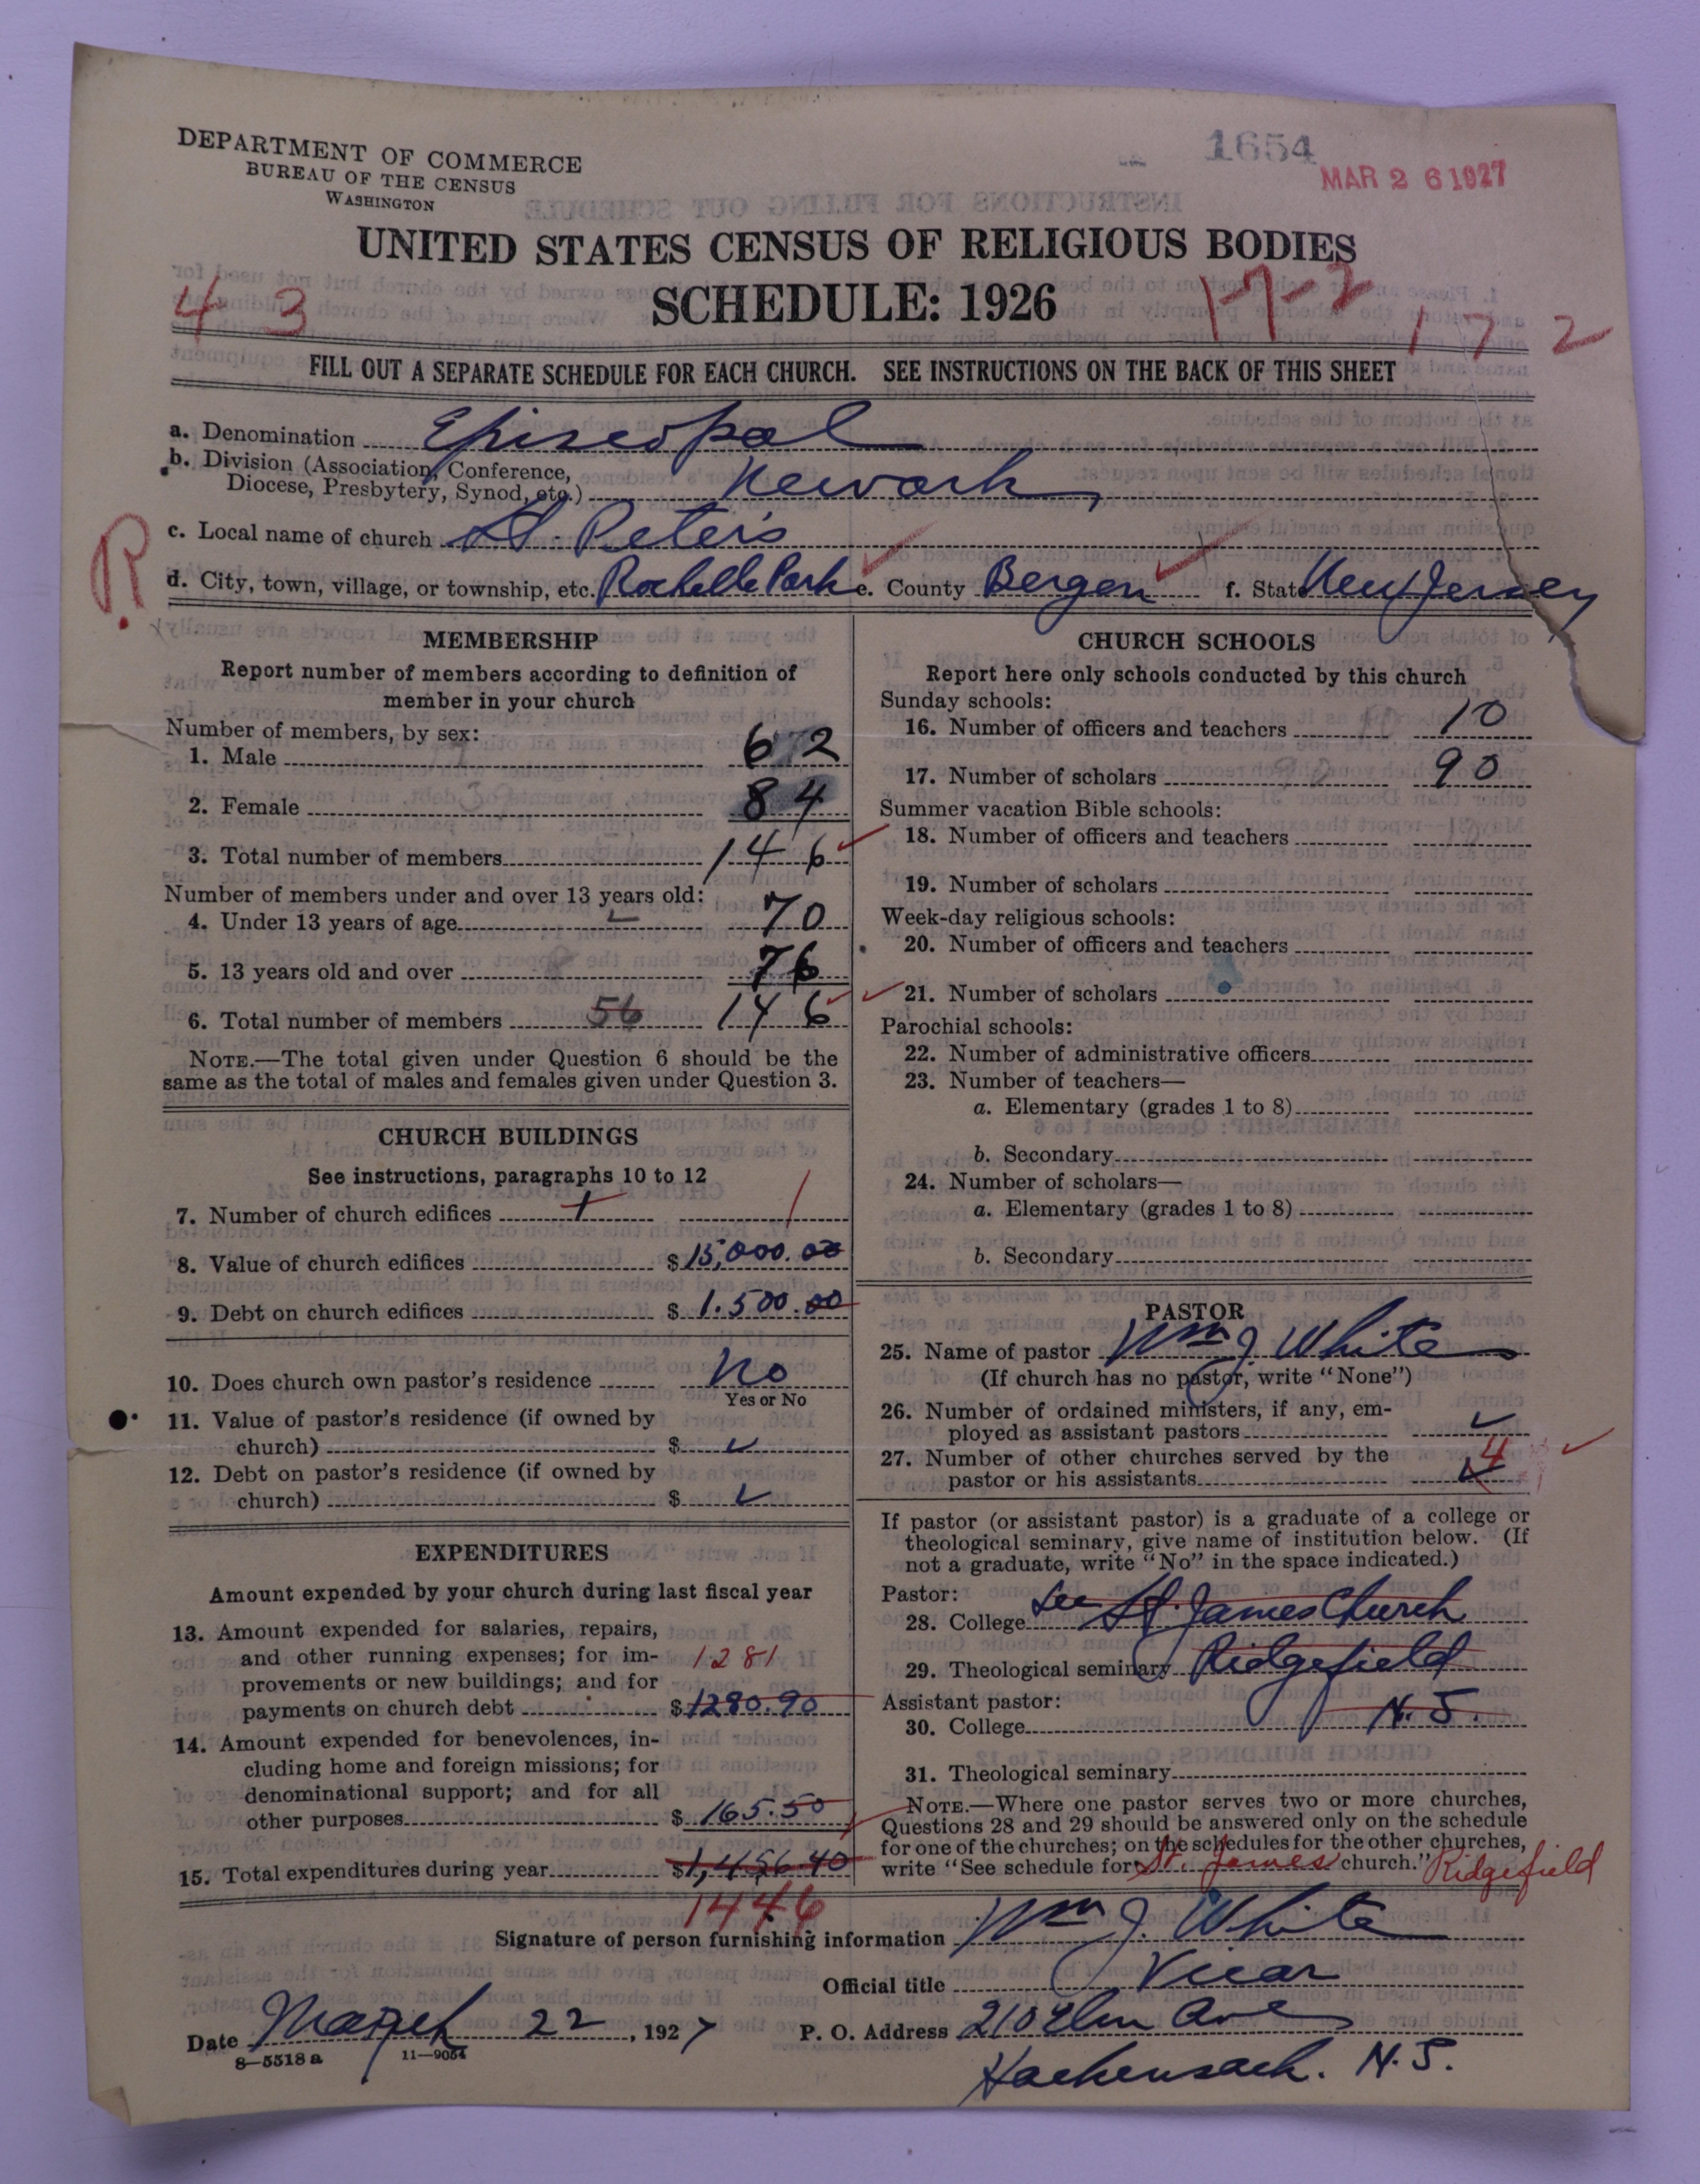 DEPARTMENT OF COMMERCE
BUREAU OF THE CENSUS
WASHINGTON
1654
MAR 26 1927
UNITED STATES CENSUS OF RELIGIOUS BODIES
SCHEDULE: 1926
4 3
17-2
17 2
FILL OUT A SEPARATE SCHEDULE FOR EACH CHURCH. SEE INSTRUCTIONS ON THE BACK OF THIS SHEET
a. Denomination Episcopal
b. Division (Association, Conference,
Diocese, Presbytery, Synod, etc.) Newark
R.
c. Local name of church St. Peter's
d. City, town, village, or township, etc. Rochelle Park e. County Bergen f. State New Jersey
MEMBERSHIP
Report number of members according to definition of
member in your church
Number of members, by sex:
1. Male 62
2. Female 84
3. Total number of members 146
Number of members under and over 13 years old:
4. Under 13 years of age 70
5. 13 years old and over 76
6. Total number of members 56 146
NOTE.—The total given under Question 6 should be the
same as the total of males and females given under Question 3.
CHURCH BUILDINGS
See instructions, paragraphs 10 to 12
7. Number of church edifices 1 1
8. Value of church edifices $15,000.00
9. Debt on church edifices $1.500.00
10. Does church own pastor's residence No
Yes or No
11. Value of pastor's residence (if owned by
church) $ ✓
12. Debt on pastor's residence (if owned by
church) $ ✓
EXPENDITURES
Amount expended by your church during last fiscal year
13. Amount expended for salaries, repairs,
and other running expenses; for im- 1281
provements or new buildings; and for
payments on church debt $1280.90
14. Amount expended for benevolences, in-
cluding home and foreign missions; for
denominational support; and for all
other purposes $165.50
15. Total expenditures during year $1,456.40
1446
CHURCH SCHOOLS
Report here only schools conducted by this church
Sunday schools:
16. Number of officers and teachers 10
17. Number of scholars 90
Summer vacation Bible schools:
18. Number of officers and teachers
19. Number of scholars
Week-day religious schools:
20. Number of officers and teachers
21. Number of scholars
Parochial schools:
22. Number of administrative officers
23. Number of teachers—
a. Elementary (grades 1 to 8)
b. Secondary
24. Number of scholars—
a. Elementary (grades 1 to 8)
b. Secondary
PASTOR
25. Name of pastor Wm J. White
(If church has no pastor, write "None")
26. Number of ordained ministers, if any, em-
ployed as assistant pastors ✓
27. Number of other churches served by the
pastor or his assistants 4
If pastor (or assistant pastor) is a graduate of a college or
theological seminary, give name of institution below. (If
not a graduate, write "No" in the space indicated.)
Pastor:
28. College See St. James Church
29. Theological seminary Ridgefield
Assistant pastor:
30. College N.J.
31. Theological seminary
NOTE.—Where one pastor serves two or more churches,
Questions 28 and 29 should be answered only on the schedule
for one of the churches; on the schedules for the other churches,
write "See schedule for St. James church." Ridgefield
Signature of person furnishing information Wm J. White
Official title Vicar
Date March 22, 1927 P. O. Address 210 Elm Ave
8—5518a 11—9054
Hackensack. N.J.